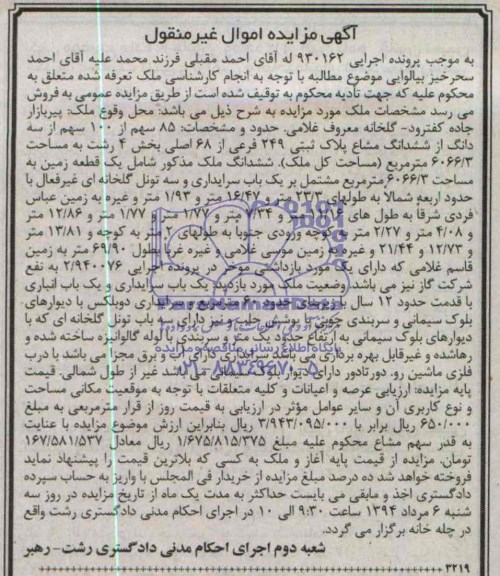 آگهی مزایده اموال غیرمنقول
به موجب پرونده اجرایی ۹۳۰۱۶۲ له آقای احمد مقبلی فرزند محمد علیه آقای احمد
سحرخیز بیالوایی موضوع مطالبه با توجه به انجام کارشناسی ملک تعرفه شده متعلق به
محکوم علیه که جهت تادیه محکوم به توقیف شده است از طریق مزایده عمومی به فروش
می رسد مشخصات ملک مورد مزایده به شرح ذیل می باشد: محل وقوع ملک: پیربازار
جاده کفترود- گلخانه معروف غلامی. حدود و مشخصات: ۸۵ سهم از ۱۰۰ سهم از سه
دانگ از ششدانگ مشاع پلاک ثبتی ۲۴۹ فرعی از ۶۸ اصلی بخش ۴ رشت به مساحت
۶۰۶۶/۳ مترمربع (مساحت کل ملک). ششدانگ ملک مذکور شامل یک قطعه زمین به
مساحت ۶۰۶۶/۳ مترمربع مشتمل بر یک باب سرایداری و سه تونل گلخانه ای غیرفعال با
حدود اربعه شمالا به طولهای ۱۶/۴۷ متر و ۱/۹۳ متر و غیره به زمین عباس
فردی شرقا به طول های متر و ۱/۷۷ متر ۱/۷۷ متر و ۱۲/۸۶ متر
و ۴/۰۸ متر و ۲/۲۷ متر به کوچه ورودی جنوبا به طولهای متر به کوچه و ۱۳/۸۱ متر
و ۱۲/۷۳ و ۲۱/۴۴ و غیره به زمین موسی غلامی و غیره غربا بطول ۶۹/۹۰ متر به زمین
قاسم غلامی که دارای یک مورد بازداشتی موخر در پرونده اجرایی ۲/۹۴۰۰۷۶ به نفع
شرکت گاز نیز می باشد. وضعیت ملک مورد بازدید یک باب سرایداری و یک باب انباری
با قدمت حدود ۱۲ سال به حدود ۶۰ سرایداری دوبلکس با دیوارهای
بلوک سیمانی و سربندی چوبی با پوشش حلب و نیز دارای سه باب تونل گلخانه ای که با
دیوارهای بلوک سیمانی به ارتفاع حدود یک متر و سربندی با لوله گالوانیزه ساخته شده و
رهاشده و غیرقابل بهره برداری می باشد سرایداری دارای آب و برق مجزا می باشد با درب
فلزی ماشین رو. دورتادور دارای دیوار بلوک سیمانی می باشد غیر از طول شمالی. قیمت
پایه مزایده: ارزیابی عرصه و اعیانات و کلیه متعلقات با توجه به موقعیت مکانی مساحت
و نوع کاربری آن و سایر عوامل مؤثر در ارزیابی به قیمت روز از قرار مترمربعی به مبلغ
۶۵۰/۰۰۰ ریال برابر با ۳/۹۴۳/۰۹۵/۰۰۰ ریال بنابراین ارزش موضوع مزایده با عنایت
به قدر سهم مشاع محکوم علیه مبلغ ۱/۶۷۵/۸۱۵/۳۷۵ ریال معادل ۱۶۷/۵۸۱/۵۳۷
تومان. مزایده از قیمت پایه آغاز و ملک به کسی که بالاترین قیمت را پیشنهاد نماید
فروخته خواهد شد ده درصد مبلغ مزایده از خریدار فی المجلس با واریز به حساب سپرده
دادگستری اخذ و مابقی می بایست حداکثر به مدت یک ماه از تاریخ مزایده در روز سه
شنبه ۶ مرداد ۱۳۹۴ ساعت ۹:۳۰ الی ۱۰ در اجرای احکام مدنی دادگستری رشت واقع
در چله خانه برگزار می گردد.
شعبه دوم اجرای احکام مدنی دادگستری رشت- رهبر
۳۲۱۹
ParsNamadData
پایگاه اطلاع رسانی مناقصه و مزایده
۰۲۱-۸۸۳۴۹۶۷۰-۵